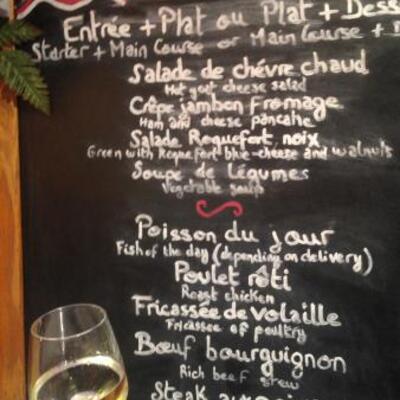 Entrée + Plat ou Plat + Dess
Starter + Main Course or Main Course +
Salade de chévre chaud
Hot goat cheese salad
Crêpe jambon fromage
Ham and cheese pancake
Salade Roquefort noix
Green with Roquefort blue-cheese and walnuts
Soupe de Légumes
Vegetable soup
Poisson du jour
Fish of the day (depending on delivery)
Poulet rôti
Roast chicken
Fricassée de volaille
Fricassee of poultry
Bœuf bourguignon
Rich beef stew
Steak